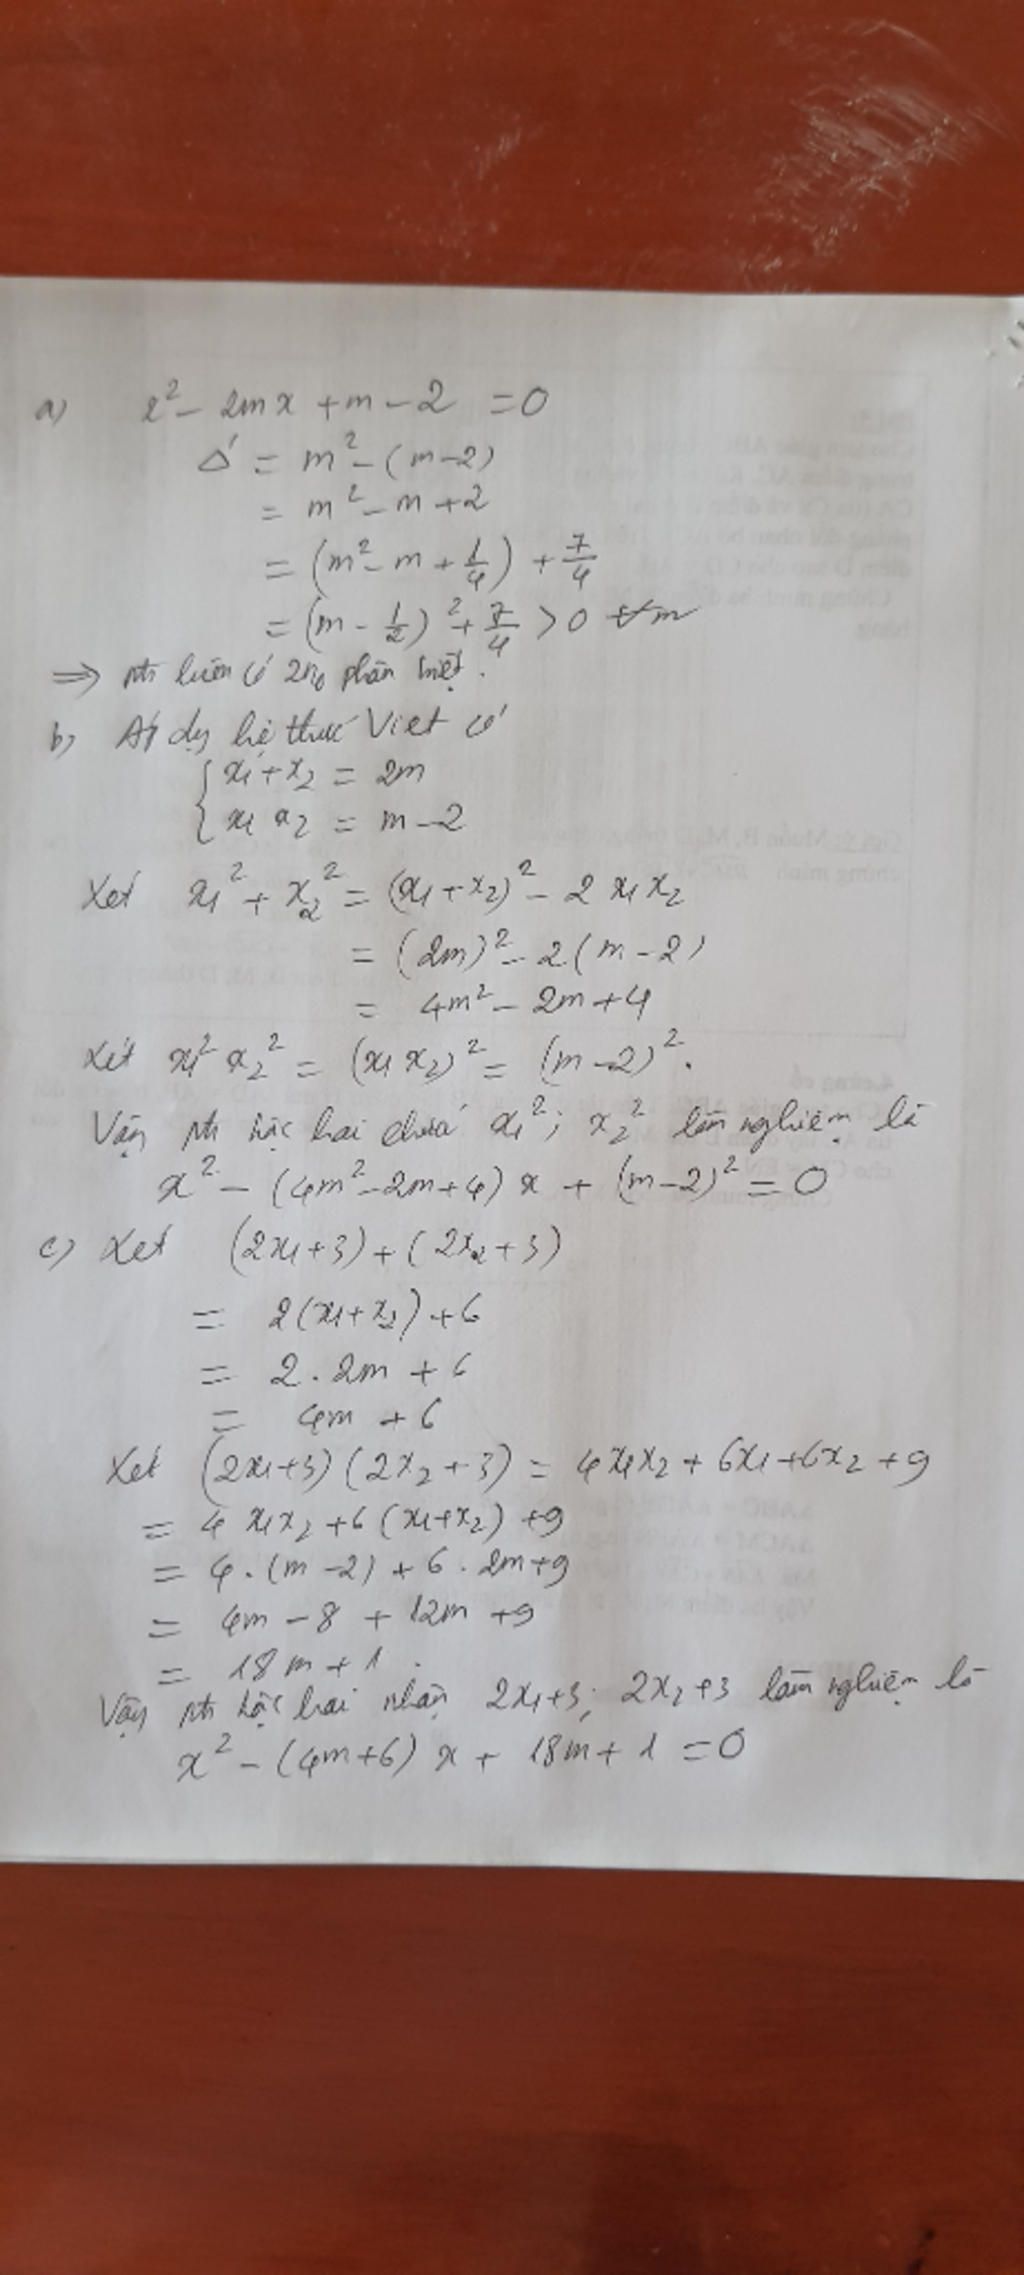 a) x² - 2mx + m - 2 = 0
Δ' = m² - (m-2)
= m² - m + 2
= (m² - m + 1/4) + 7/4
= (m - 1/2)² + 7/4 > 0 ∀m
⇒ pt luôn có 2n₀ phân biệt.
b) Áp dg hệ thức Viet có
{ x₁ + x₂ = 2m
x₁ x₂ = m - 2
Xét x₁² + x₂² = (x₁ + x₂)² - 2 x₁ x₂
= (2m)² - 2(m - 2)
= 4m² - 2m + 4
Xét x₁² x₂² = (x₁ x₂)² = (m - 2)².
Vậy pt bậc hai chứa x₁²; x₂² làm nghiệm là
x² - (4m² - 2m + 4) x + (m - 2)² = 0
c) Xét (2x₁ + 3) + (2x₂ + 3)
= 2(x₁ + x₂) + 6
= 2 . 2m + 6
= 4m + 6
Xét (2x₁ + 3) (2x₂ + 3) = 4x₁x₂ + 6x₁ + 6x₂ + 9
= 4 x₁x₂ + 6 (x₁ + x₂) + 9
= 4 . (m - 2) + 6 . 2m + 9
= 4m - 8 + 12m + 9
= 18m + 1.
Vậy pt bậc hai nhận 2x₁ + 3; 2x₂ + 3 làm nghiệm là
x² - (4m + 6) x + 18m + 1 = 0